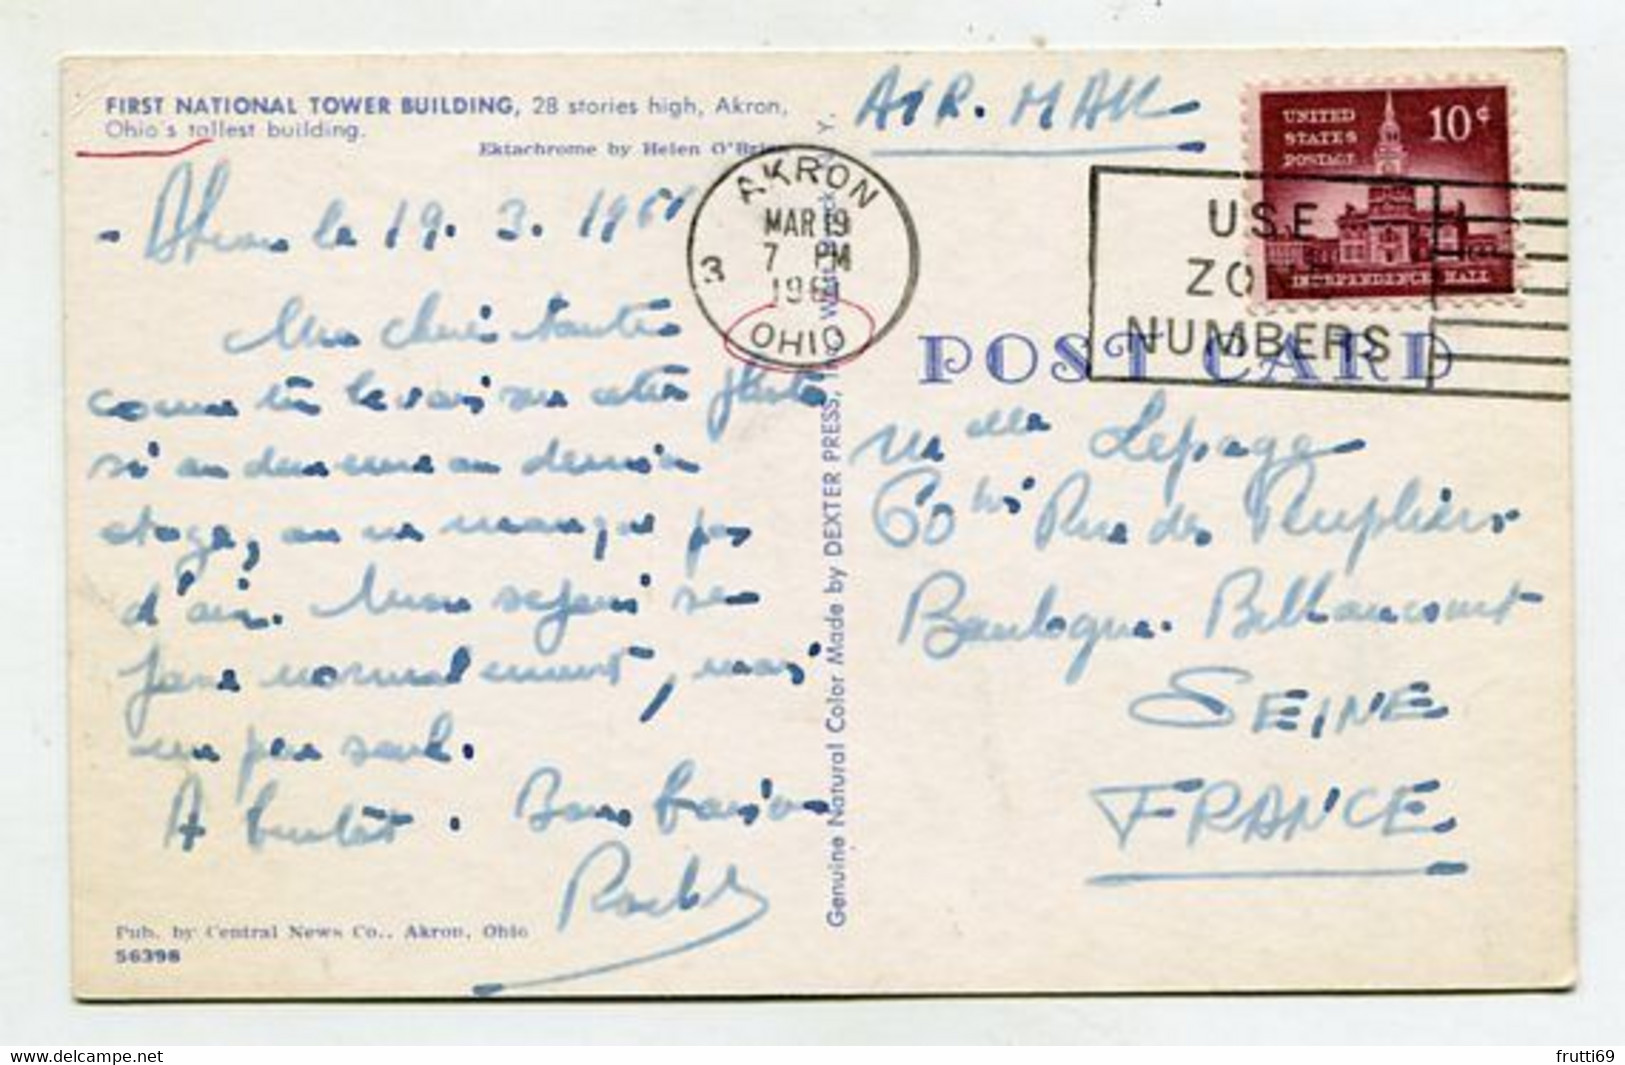 FIRST NATIONAL TOWER BUILDING, 28 stories high, Akron,
Ohio's tallest building.
Ektachrome by Helen O'Brien
Akron le 19. 3. 1961
Ma chère tante
comme tu le vois sur cette photo
si on demeure au dernier
etage, on ne manque pas
d'air. Mon sejour se
passe normalement, mais
un peu seul.
A bientôt. Bons baisers
Pub. by Central News Co., Akron, Ohio
56398
Genuine Natural Color Made by DEXTER PRESS,
AKRON
MAR 19
7 PM
1961
OHIO
3
AIR. MAIL
UNITED
STATES
POSTAGE
10¢
INDEPENDENCE HALL
USE
ZONE
NUMBERS
POST CARD
Melle Lepage
60 bis Rue des Peupliers
Boulogne. Billancourt
SEINE
FRANCE.
frutti69
www.delcampe.net